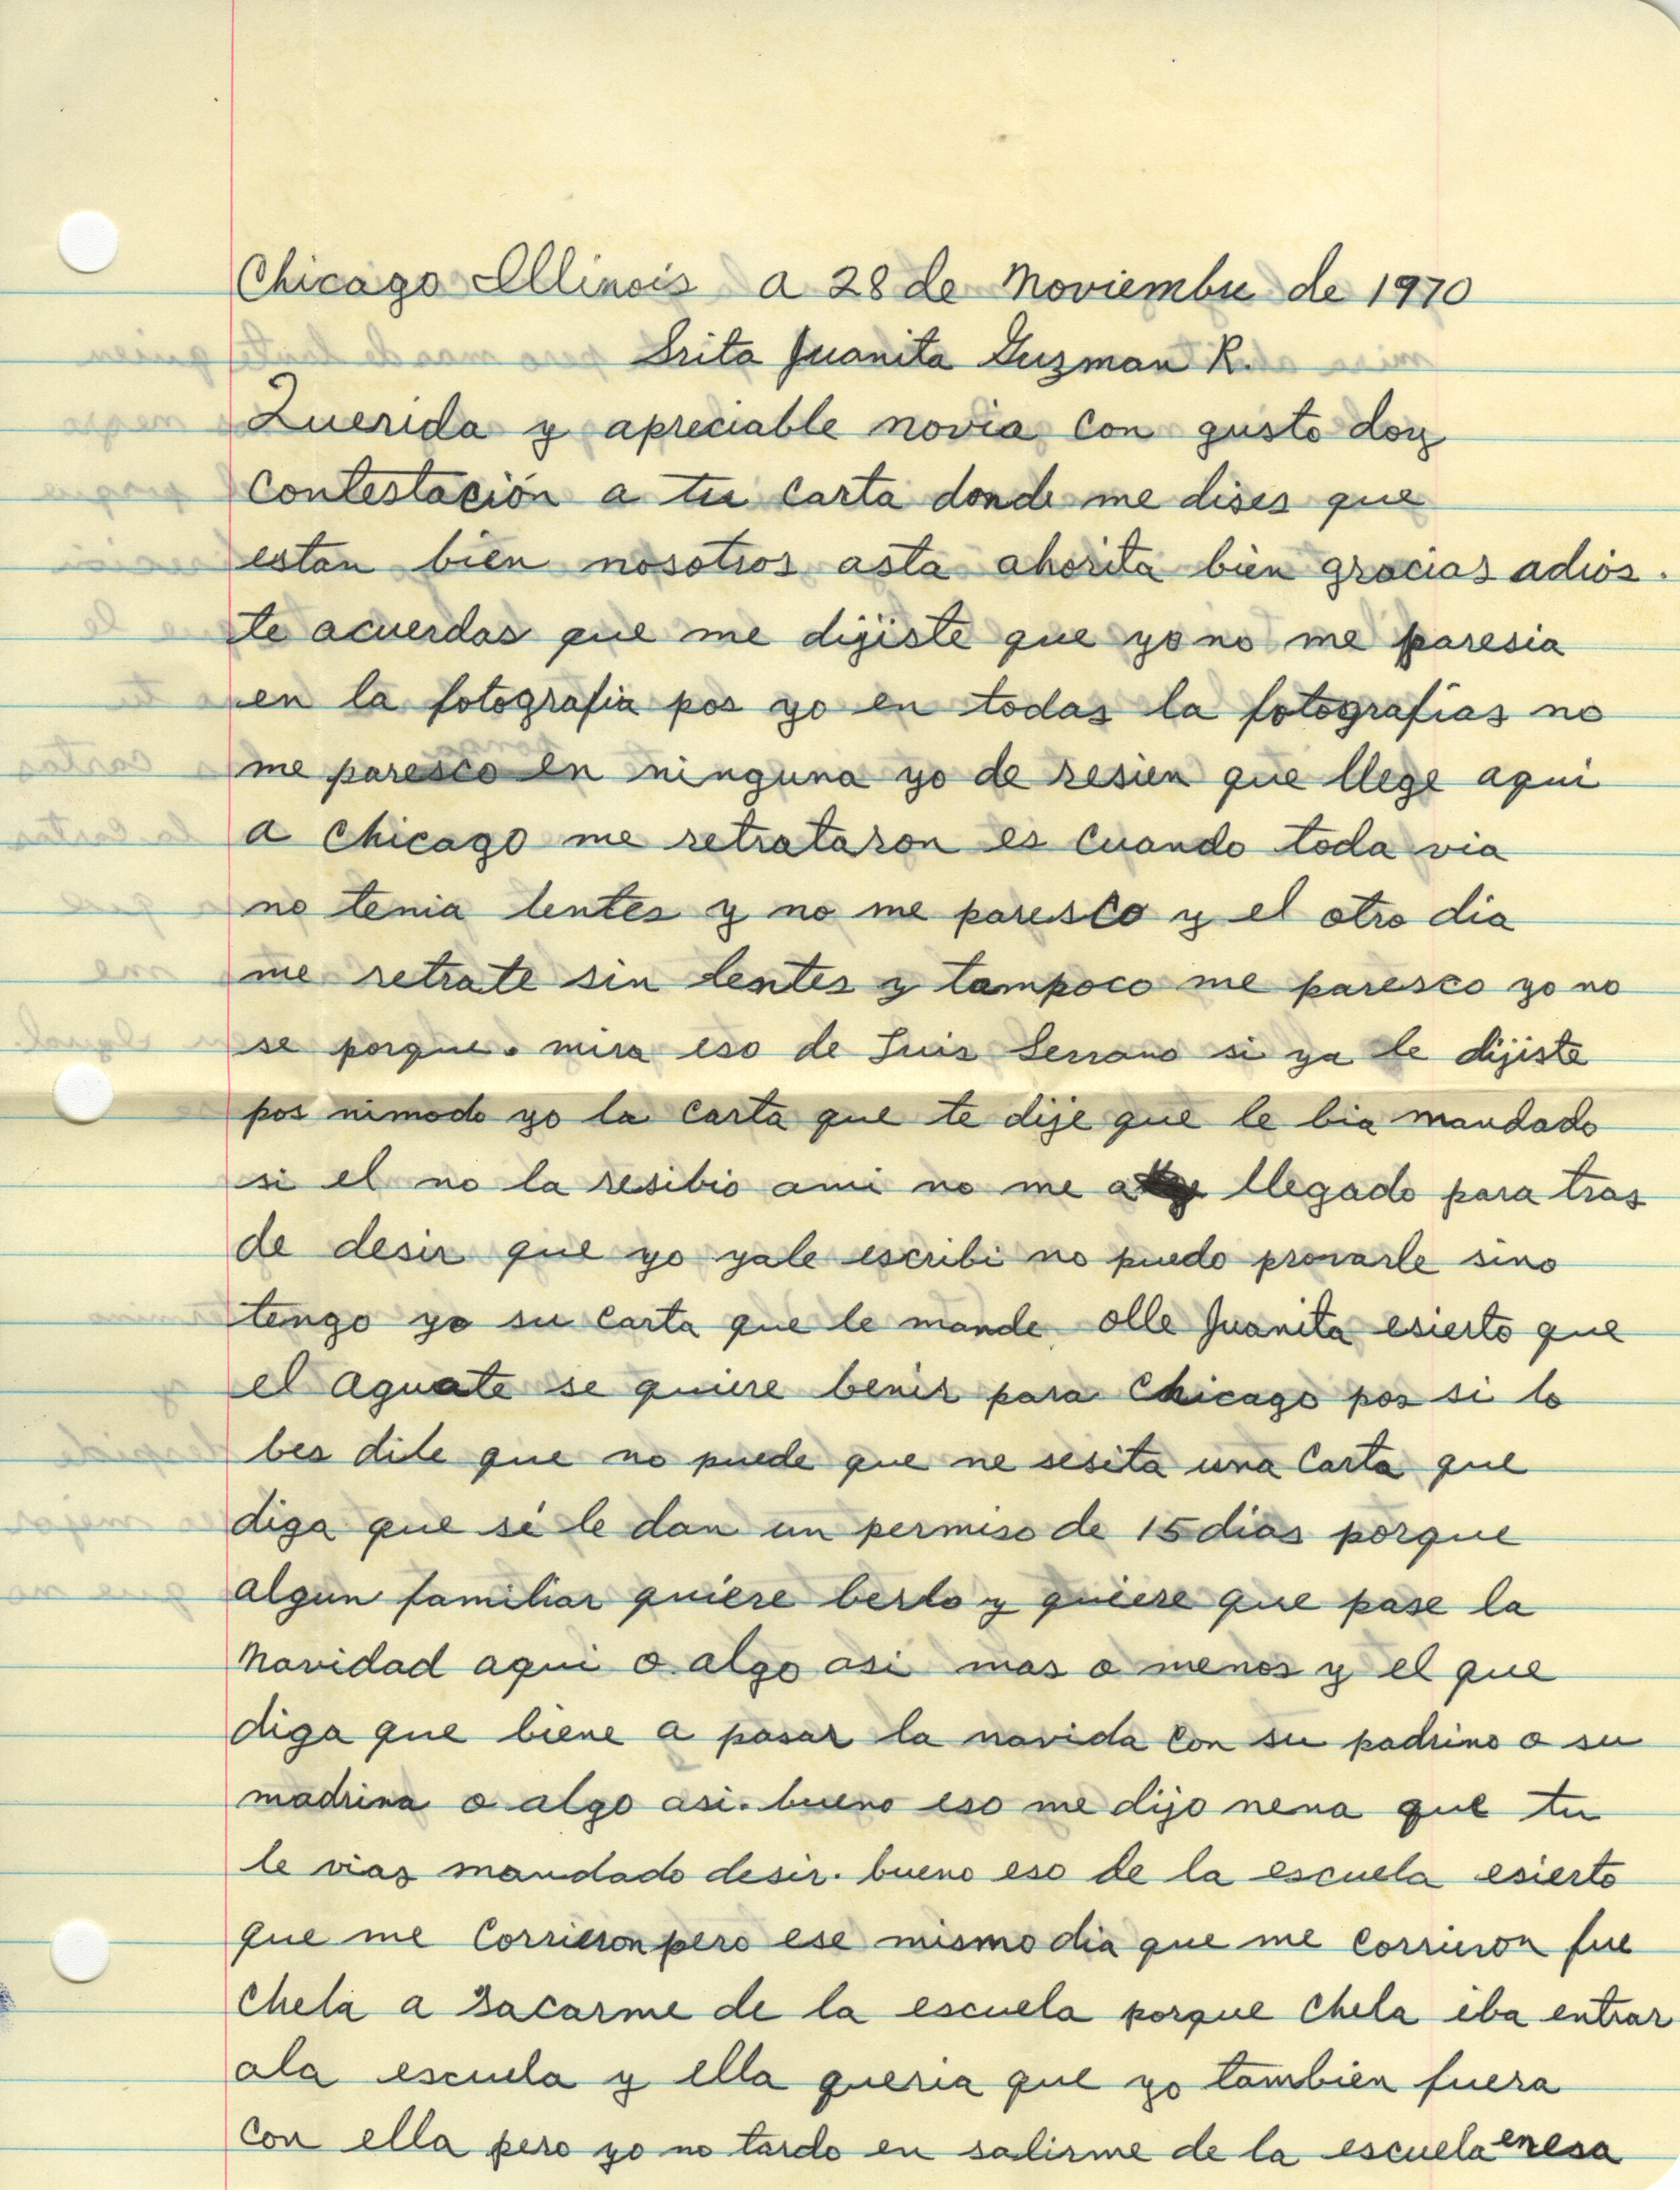 Chicago Illinois a 28 de Noviembre de 1970
Srita Juanita Guzman R.
Querida y apreciable novia con gusto doy
contestación a tu carta donde me dises que
estan bien nosotros asta ahorita bien gracias adios.
te acuerdas que me dijiste que yo no me paresia
en la fotografia pos yo en todas la fotografias no
me paresco en ninguna yo de resien que llege aqui
a chicago me retrataron es cuando toda via
no tenia lentes y no me paresco y el otro dia
me retrate sin lentes y tampoco me paresco yo no
se porque. mira eso de Luis Serrano si ya le dijiste
pos nimodo yo la carta que te dije que le bia mandado
si el no la resibio ami no me a llegado para tras
de desir que yo yale escribi no puedo provarle sino
tengo yo su carta que le mande. olle Juanita esierto que
el aguate se quiere benir para chicago pos si lo
bes dile que no puede que ne sesita una carta que
diga que si le dan un permiso de 15 dias porque
algun familiar quiere berlo y quiere que pase la
navidad aqui o algo asi mas o menos y el que
diga que biene a pasar la navida con su padrino o su
madrina o algo asi. bueno eso me dijo nena que tu
le vias mandado desir. bueno eso de la escuela esierto
que me corrieron pero ese mismo dia que me corrieron fue
chela a sacarme de la escuela porque chela iba entrar
ala escuela y ella queria que yo tambien fuera
con ella pero yo no tardo en salirme de la escuela enesa